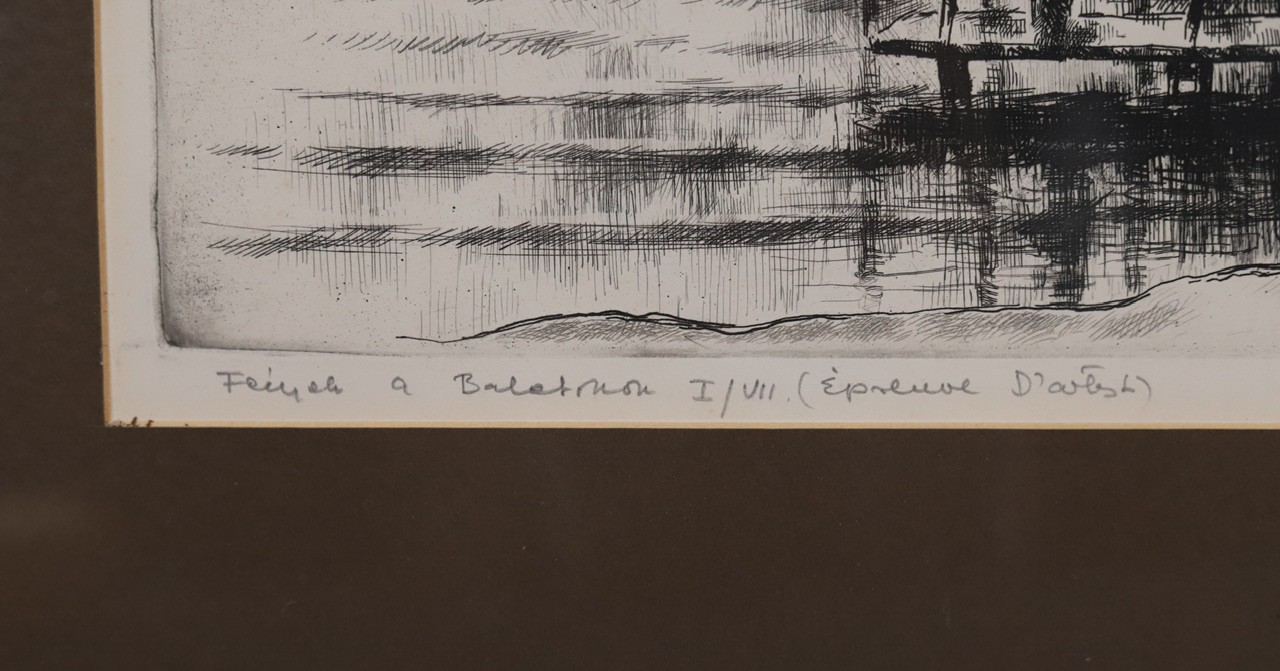 Fények a Balatonon I/VII. (Épreuve D'artist)